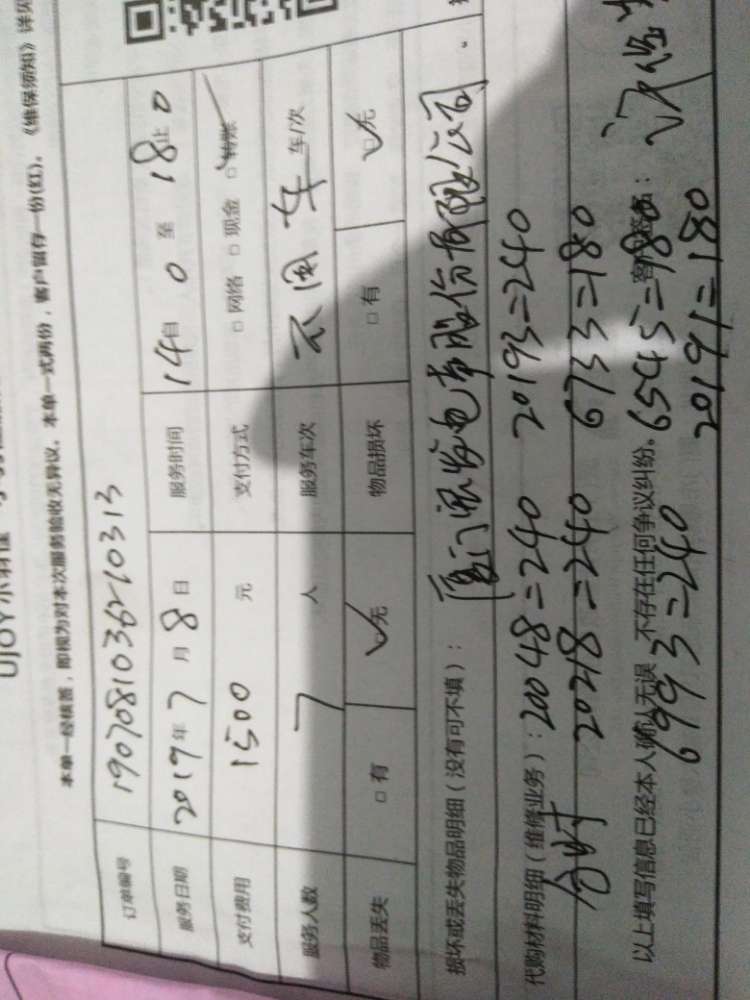 《维保须知》详见
本单一经核签，即视为对本次服务验收无异议。本单一式两份，客户留存一份(红)。
订单编号 1907081036210313
服务日期 2019年7月8日 服务时间 14时0至18止0
支付费用 1500元 支付方式 □网络 □现金 ☑转账
服务人数 7人 服务车次 不用车 车/次
物品丢失 □有 ☑无 物品损坏 □有 ☑无
损坏或丢失物品明细（没有可不填）： 厦门 发电 股份有限公司.
代购材料明细（维修业务）：20048=240 20193=240
合时 20218=240 6733=180
以上填写信息已经本人确认无误，不存在任何争议纠纷。 6545=180
6993=240 20191=180